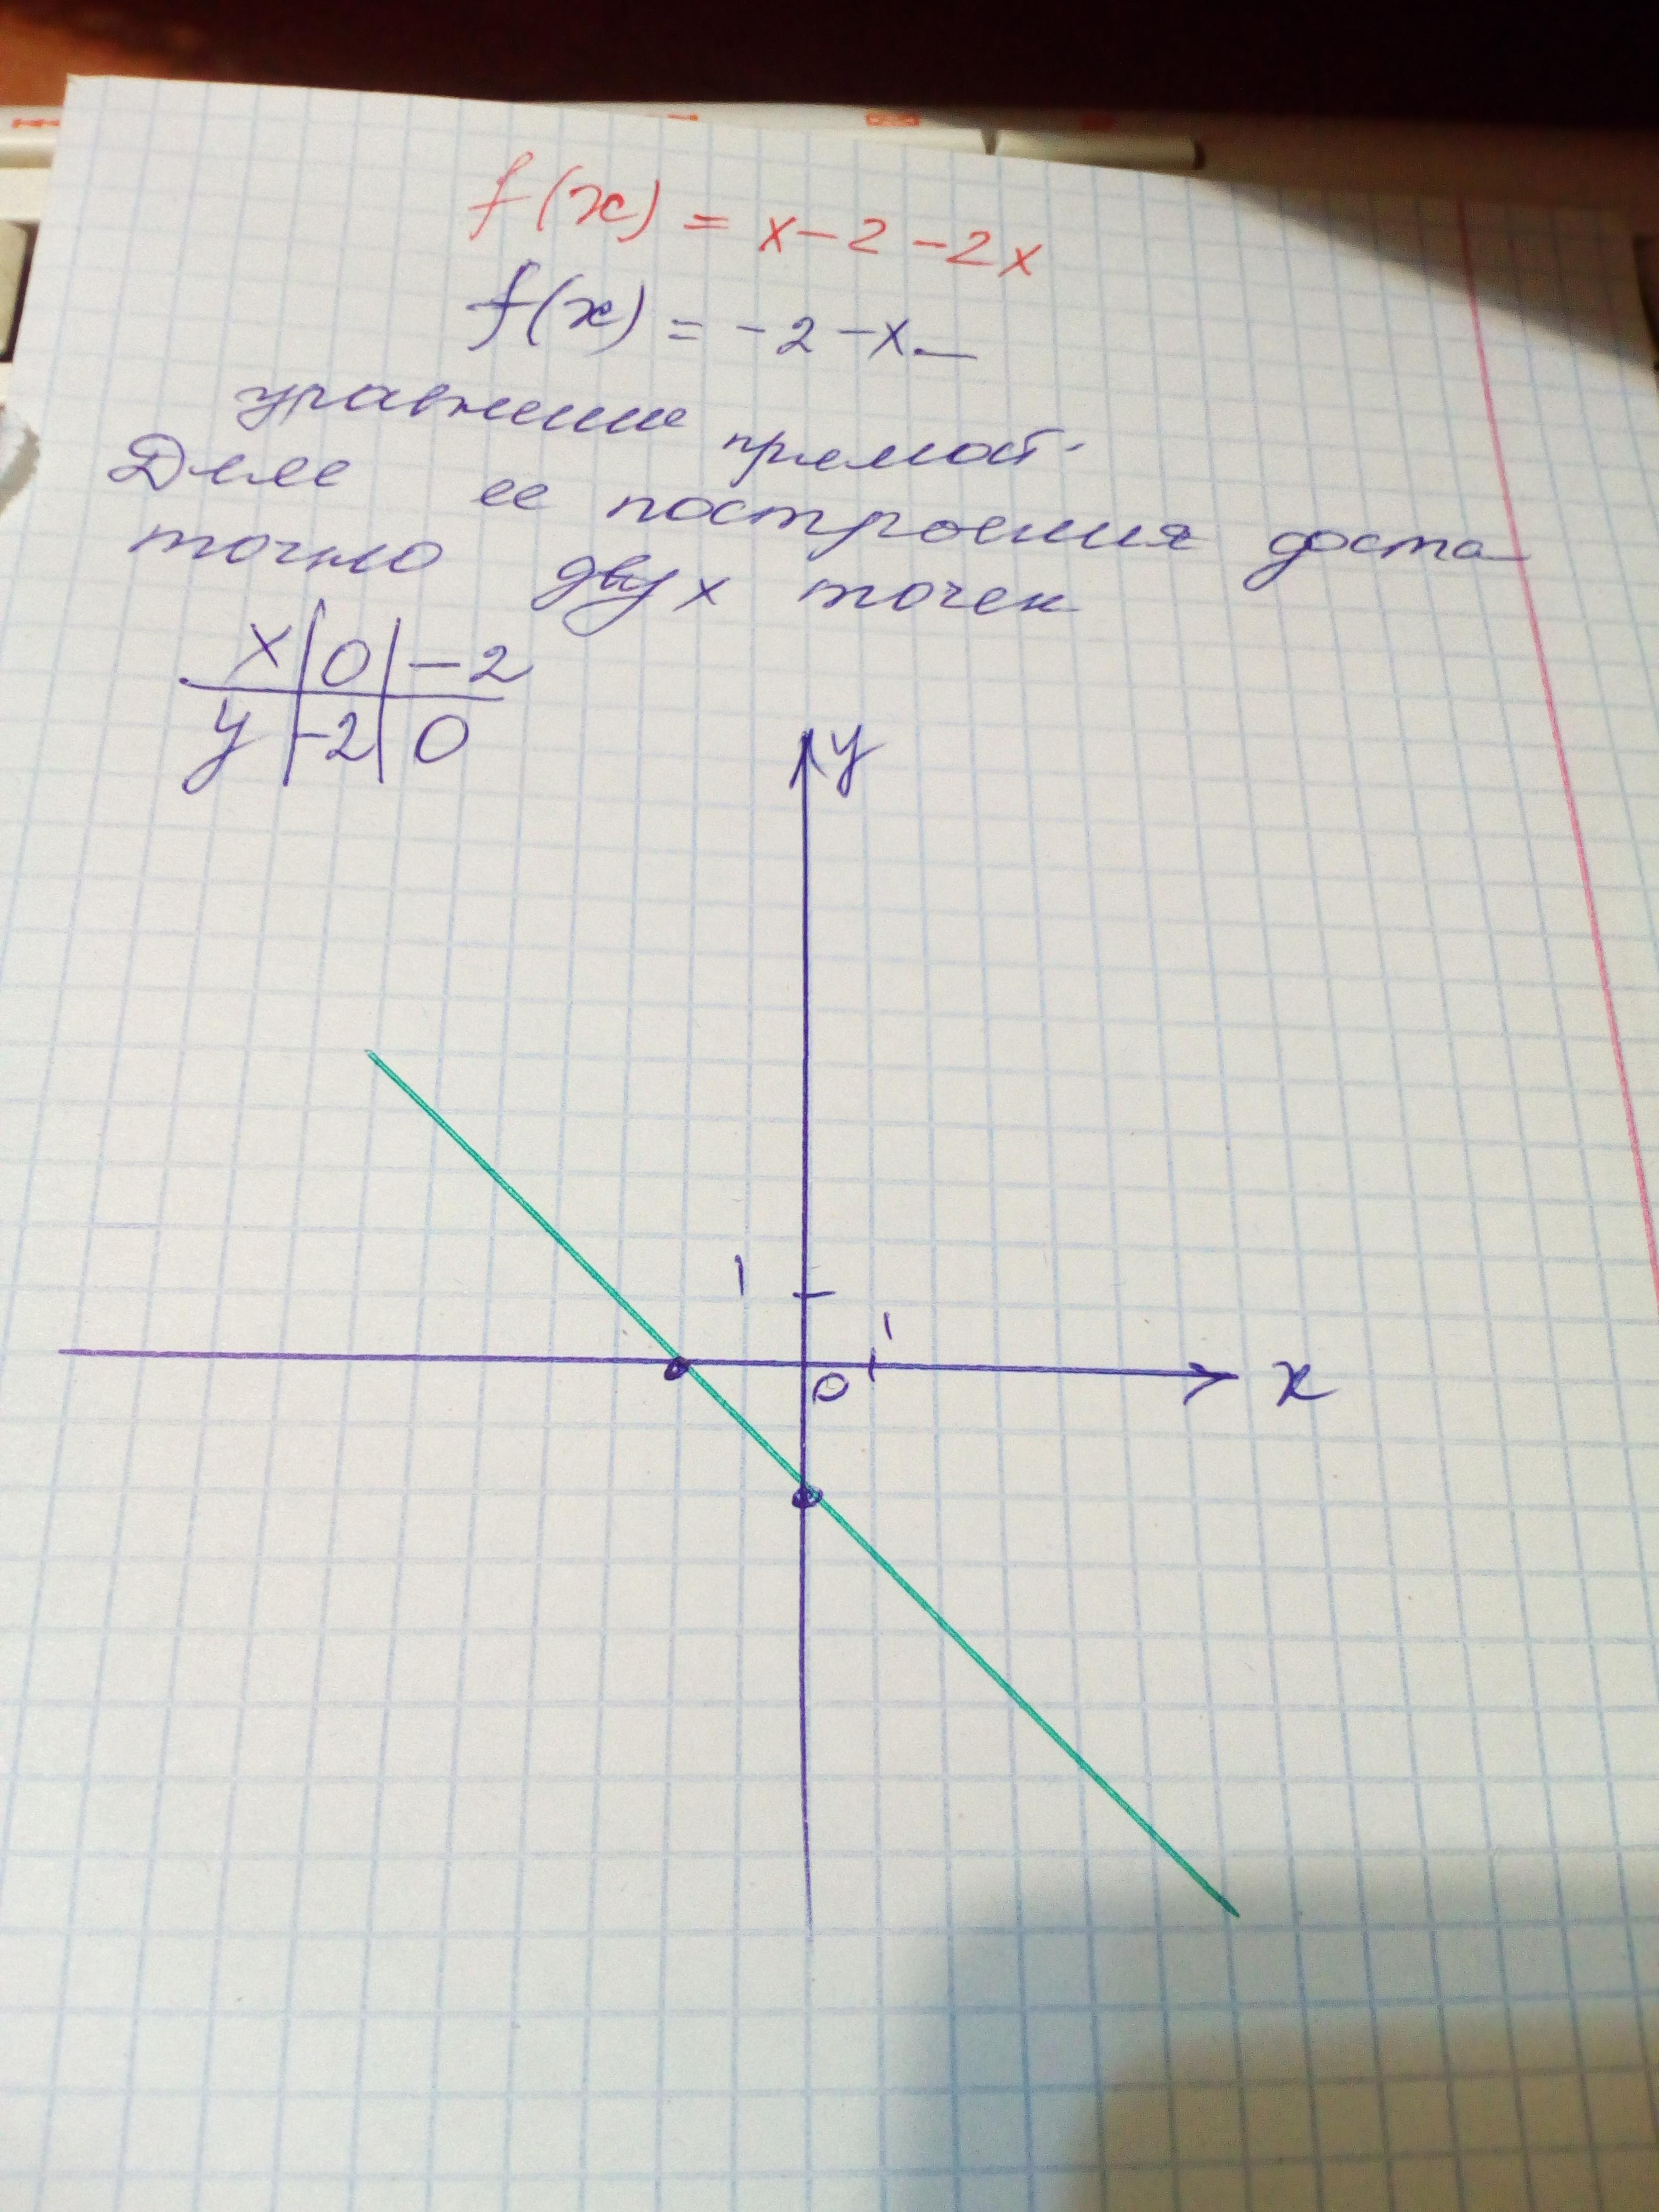 f(x) = x-2-2x
f(x) = -2-x.—
уравнение прямой.
Для ее построения доста
точно двух точек
x | 0 | -2
y | -2 | 0
y
1
1
0
x